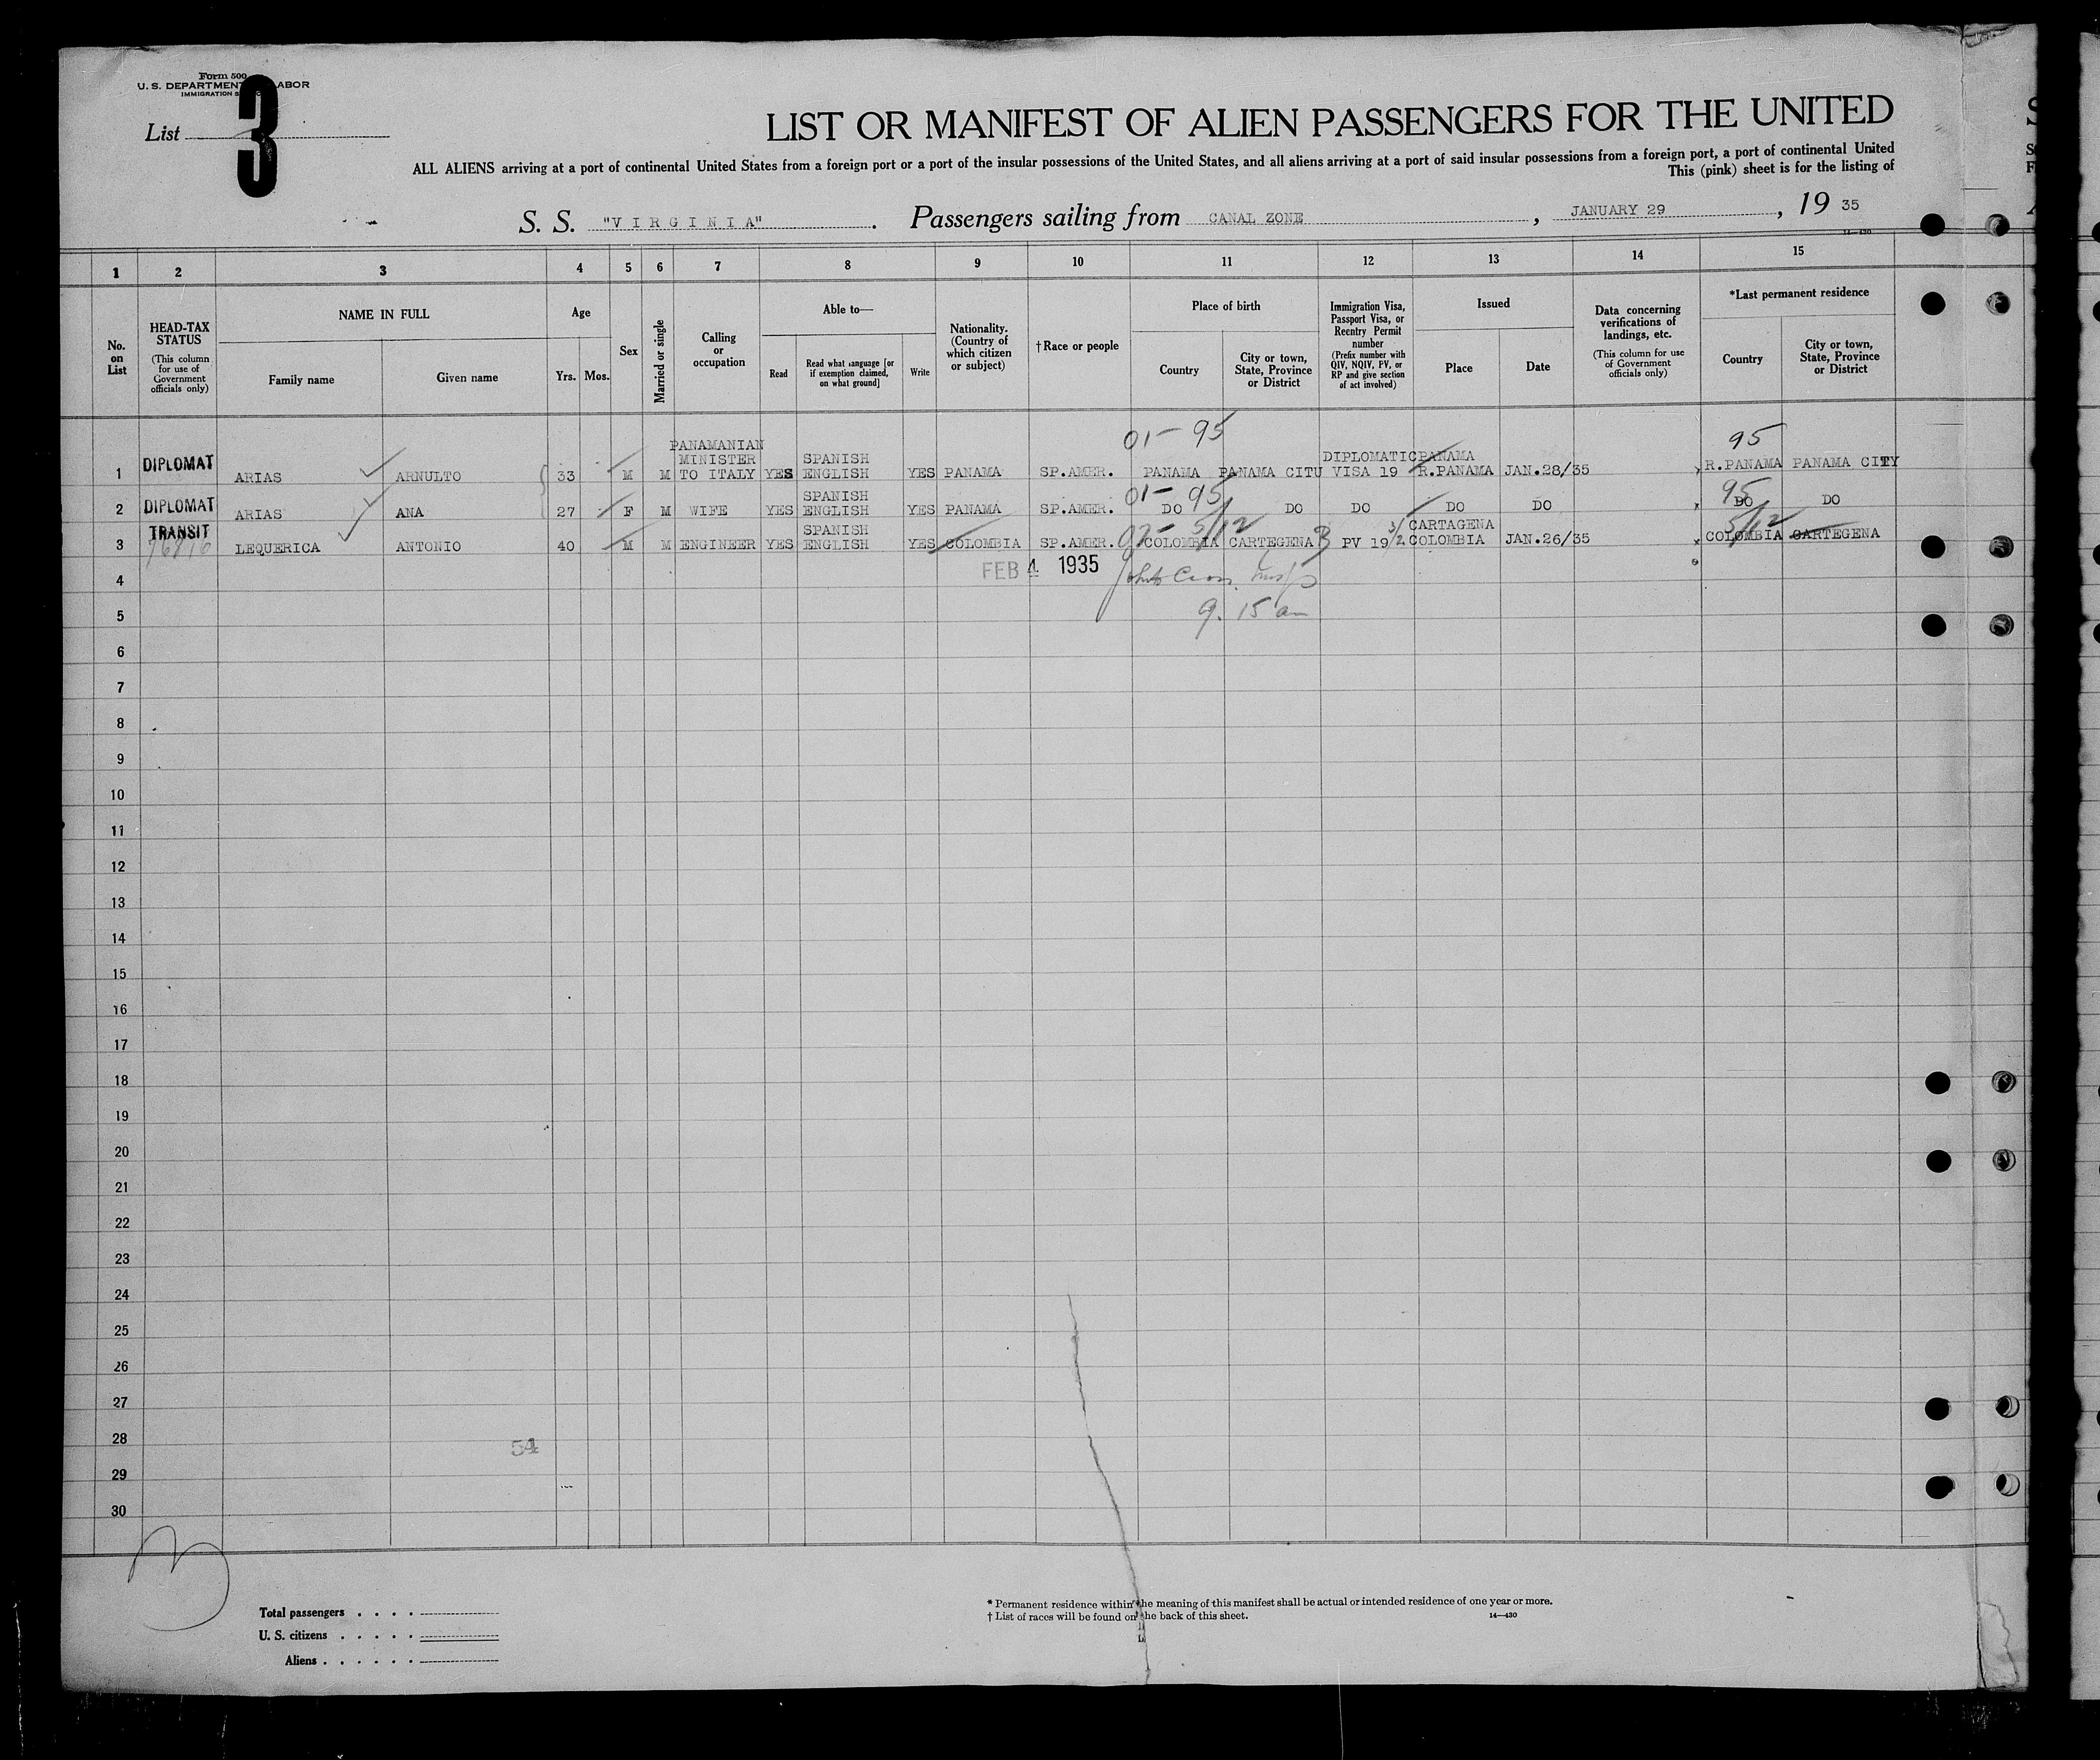 Form 500
U. S. DEPARTMENT LABOR
IMMIGRATION
List 3
LIST OR MANIFEST OF ALIEN PASSENGERS FOR THE UNITED
ALL ALIENS arriving at a port of continental United States from a foreign port or a port of the insular possessions of the United States, and all aliens arriving at a port of said insular possessions from a foreign port, a port of continental United
This (pink) sheet is for the listing of
S. S. "VIRGINIA". Passengers sailing from CANAL ZONE, JANUARY 29, 19 35
14—430
1 2 3 4 5 6 7 8 9 10 11 12 13 14 15
No. on List
HEAD-TAX STATUS (This column for use of Government officials only)
NAME IN FULL
Family name Given name
Age
Yrs. Mos.
Sex
Married or single
Calling or occupation
Able to—
Read
Read what language [or if exemption claimed, on what ground]
Write
Nationality. (Country of which citizen or subject)
†Race or people
Place of birth
Country
City or town, State, Province or District
Immigration Visa, Passport Visa, or Reentry Permit number (Prefix number with QIV, NQIV, PV, or RP and give section of act involved)
Issued
Place Date
Data concerning verifications of landings, etc. (This column for use of Government officials only)
*Last permanent residence
Country
City or town, State, Province or District
01-95 95
1 DIPLOMAT ARIAS ARNULTO 33 M M PANAMANIAN MINISTER TO ITALY YES SPANISH ENGLISH YES PANAMA SP.AMER. PANAMA PANAMA CITU DIPLOMATIC VISA 19 PANAMA R.PANAMA JAN.28/35 R.PANAMA PANAMA CITY
01-95 95
2 DIPLOMAT ARIAS ANA 27 F M WIFE YES SPANISH ENGLISH YES PANAMA SP.AMER. DO DO DO DO DO DO DO
5/12 5/12
3 TRANSIT LEQUERICA ANTONIO 40 M M ENGINEER YES SPANISH ENGLISH YES COLOMBIA SP.AMER. COLOMBIA CARTEGENA PV 19 3/2 CARTAGENA COLOMBIA JAN.26/35 COLOMBIA CARTEGENA
FEB 4 1935
4
9.15 am
5
6
7
8
9
10
11
12
13
14
15
16
17
18
19
20
21
22
23
24
25
26
27
28
54
29
30
3
Total passengers
U. S. citizens
Aliens
* Permanent residence within the meaning of this manifest shall be actual or intended residence of one year or more.
† List of races will be found on the back of this sheet.
14—430